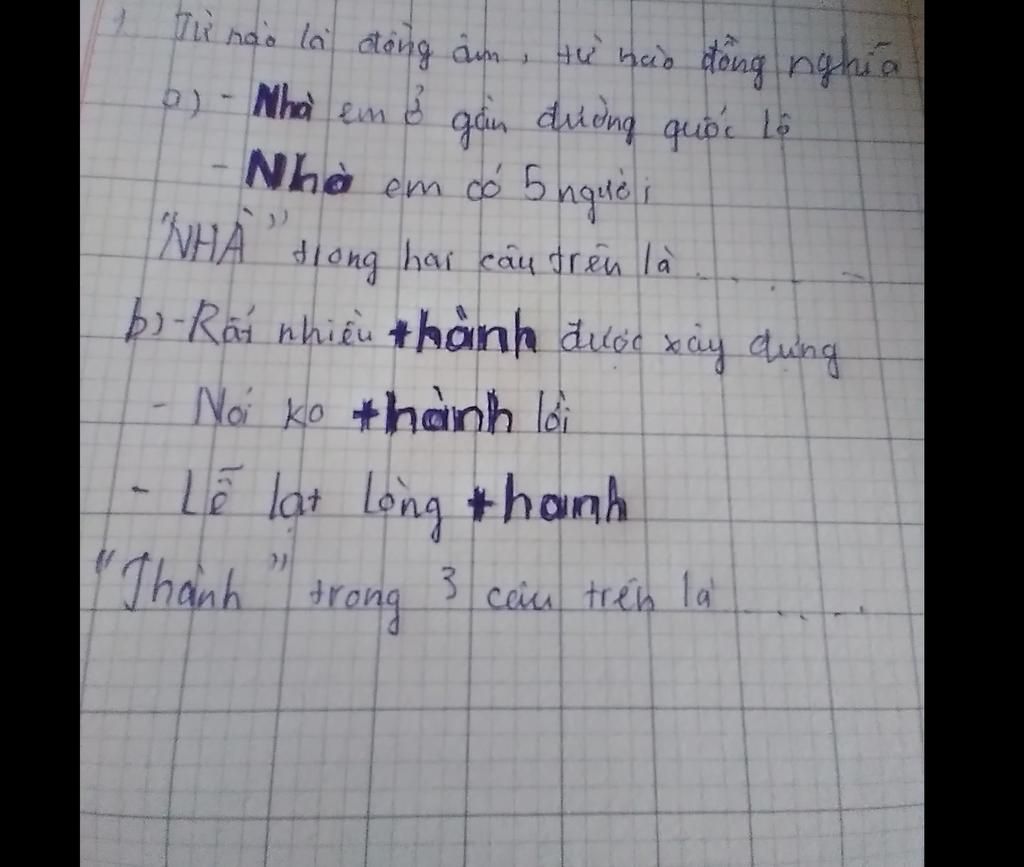 1. Từ nào là đồng âm, từ nào đồng nghĩa
a) - Nhà em ở gần đường quốc lộ
- Nhà em có 5 người
"NHÀ" trong hai câu trên là .........
b) - Rất nhiều thành được xây dựng
- Nói ko thành lời
- Lễ lạt lòng thành
"Thành" trong 3 câu trên là .........